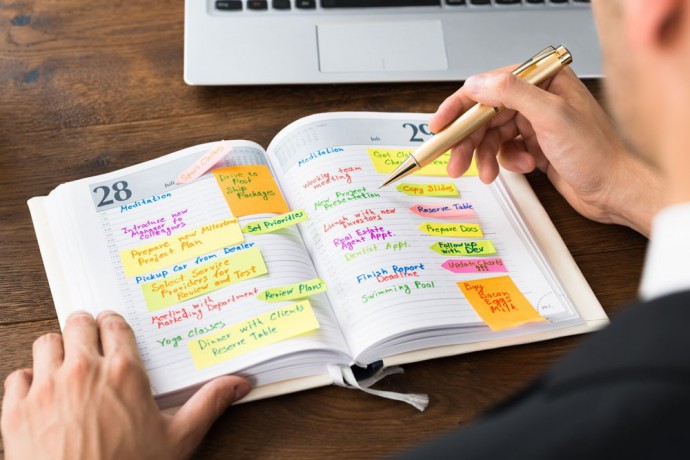 28
Juli
Meditation
Drive to
Post
Ship Packages
Introduce new
Manager to
Colleagues
Set Priorities
Prepare new Milestone
Project Plan
Pickup Car from Dealer
Select Service
Providers for Test
Review Plans
Meeting With
Marketing Department
Yoga Classes
Dinner with Clients
Reserve Table
Juli
29
Meditation
Weekly team
meeting
Copy Slides
New Project
Presentation
Reserve Table
Lunch with new
Investors
Prepare Docs
Real Estate
Agent Appt.
Dentist Appt.
Followup
with Dev
Update Charts
Finish Report
Deadline
Swimming Pool
Buy
Bacon
Eggs
Milk